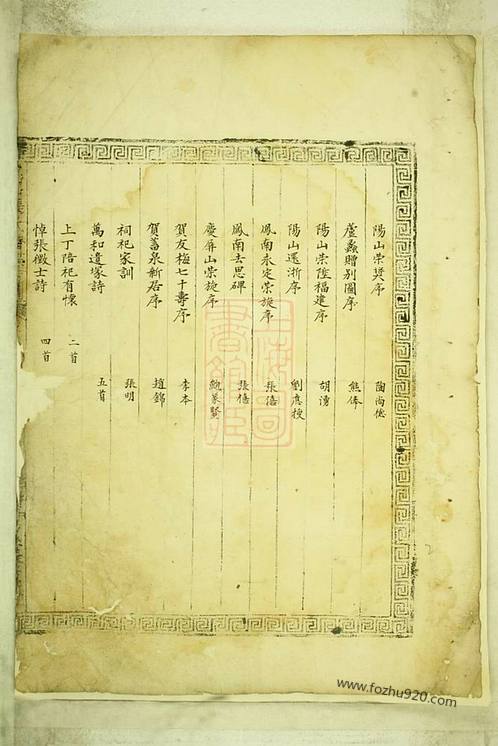 陽山崇奨序 陶尚德
蘆蟲贈别圖序 熊俸
陽山崇陞福建序 胡湧
陽山還浙序 劉應授
鳳南永定崇旋序 張僖
鳳南去思碑 張僖
慶屏山崇旋序 鮑象賢
賀友梅七十壽序 李本
賀蓄泉新居序 趙錦
祠祀家訓 張明
萬和遺塚詩 五首
上丁陪祀有懷 二首
悼張徴士詩 四首
www.fozhu920.com